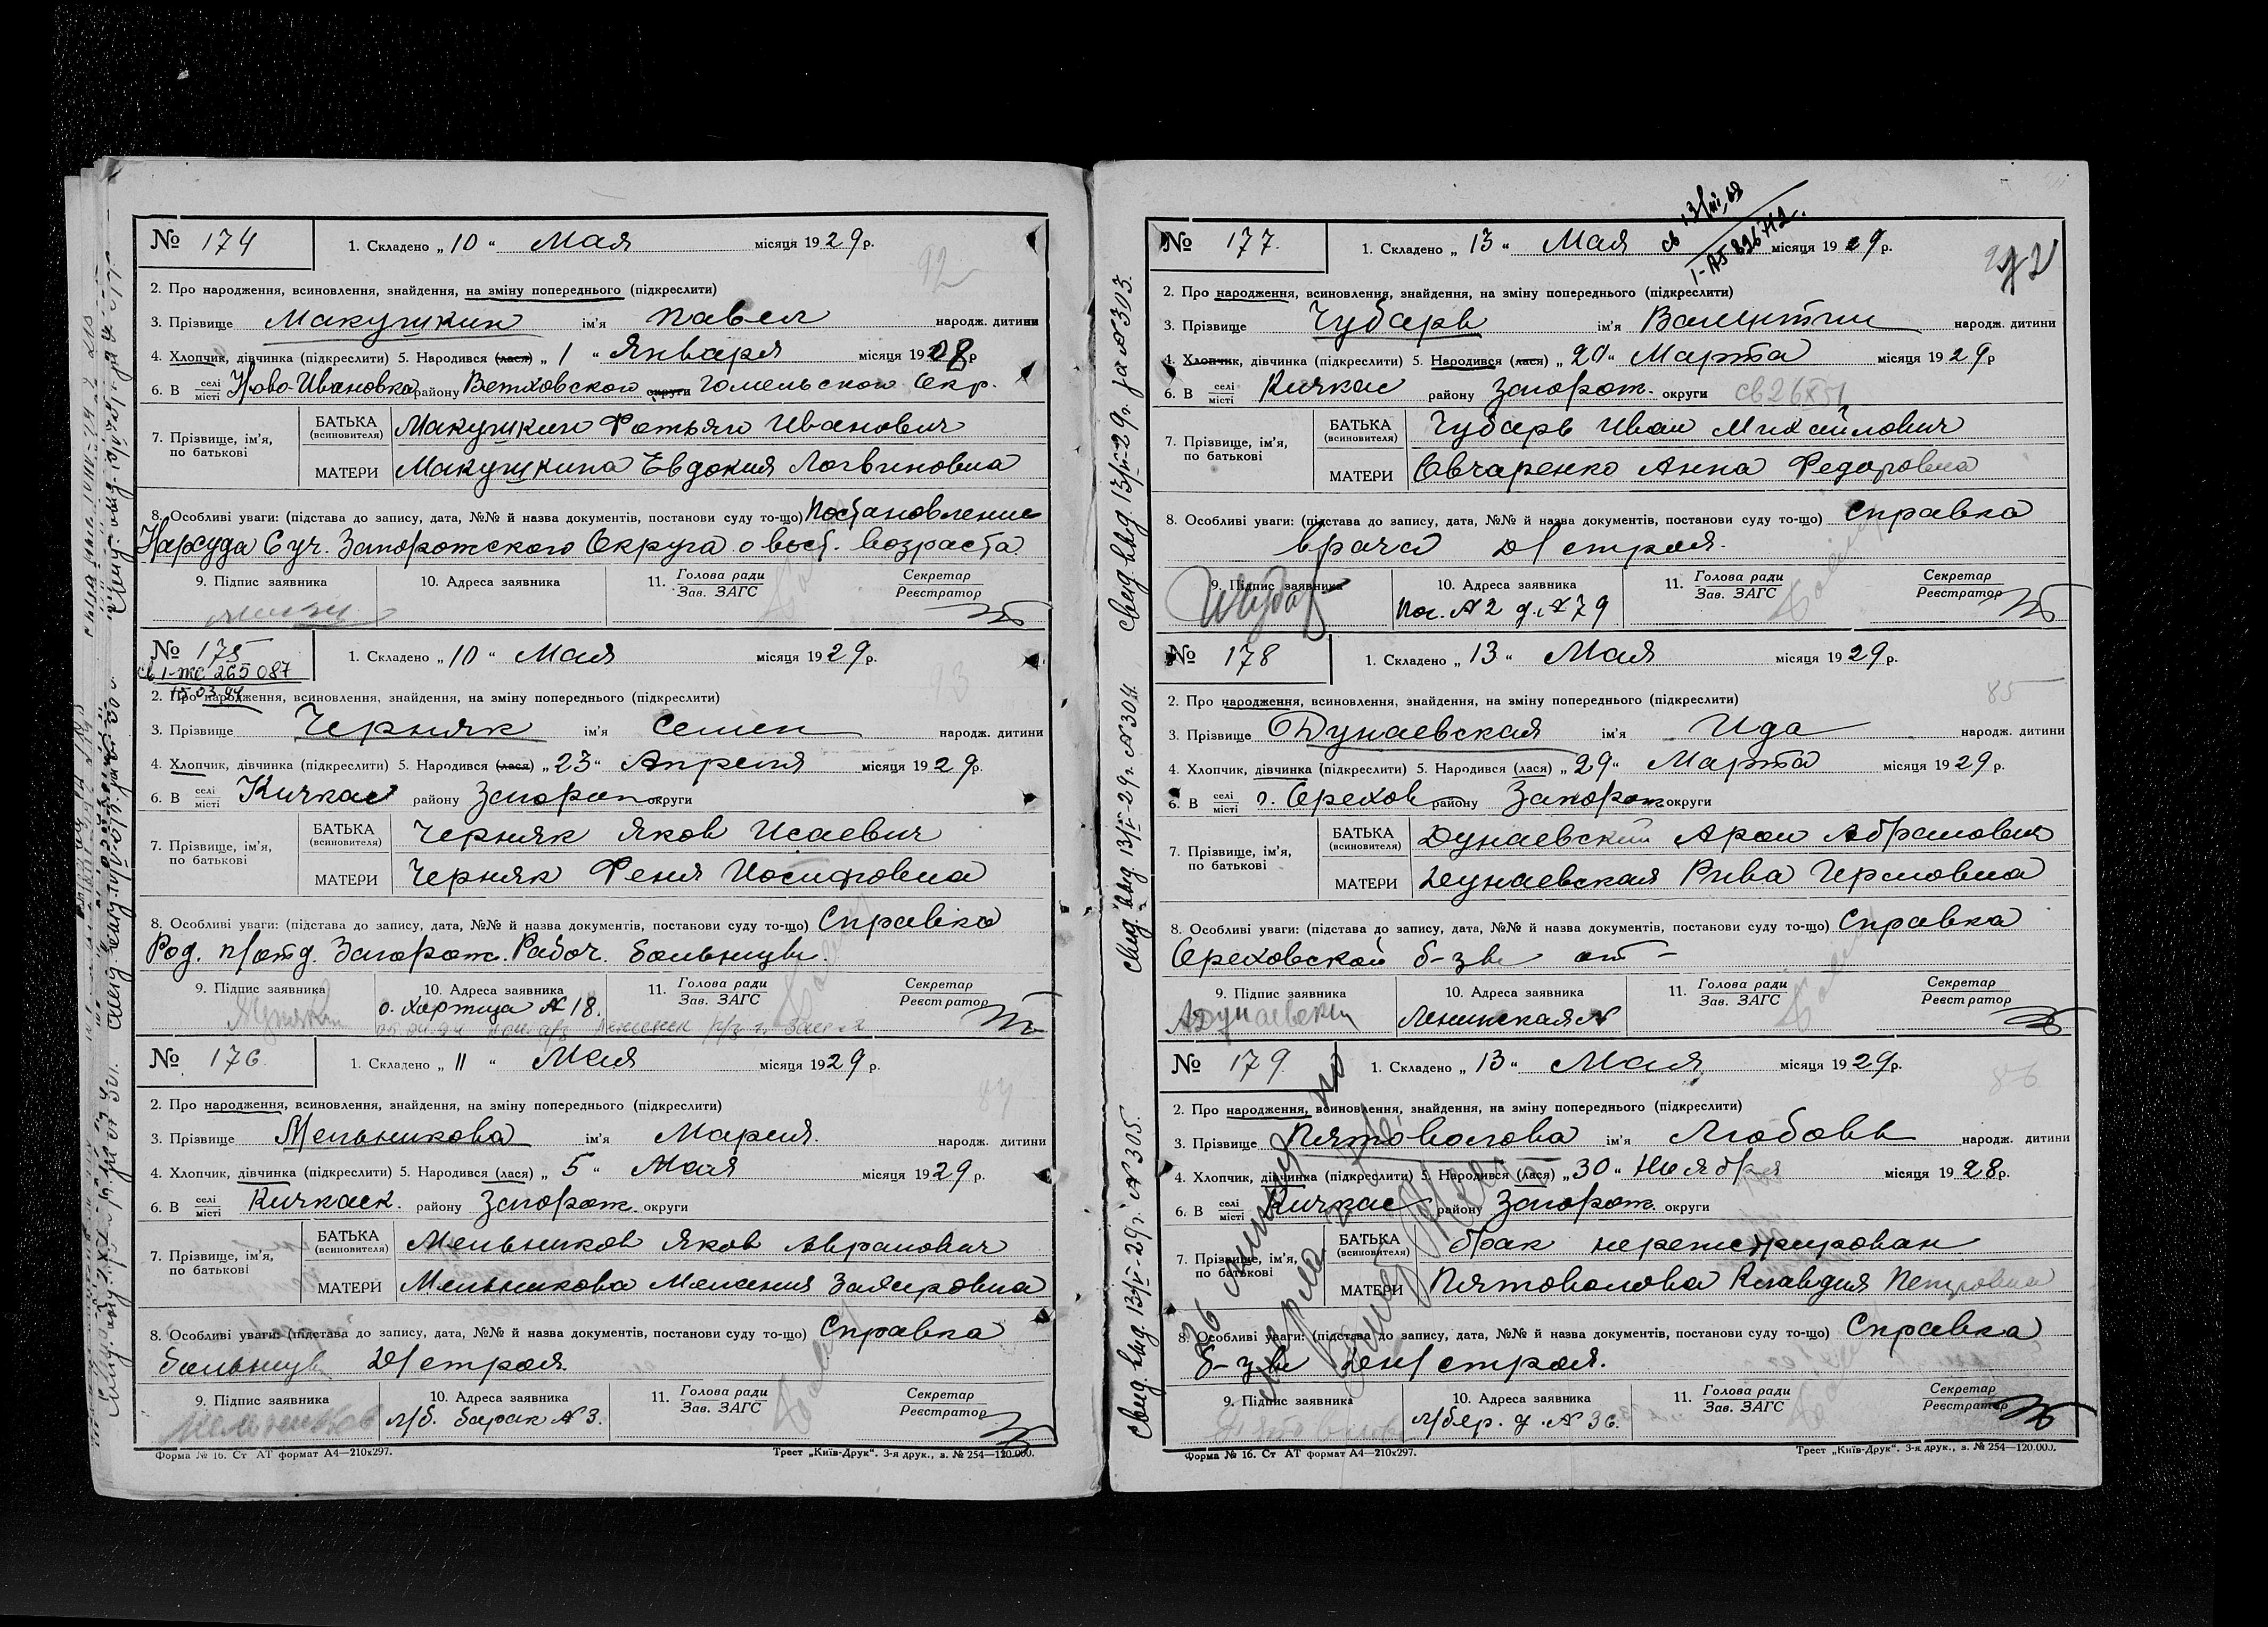 № 174 1. Складено „ 10 “ Мая місяця 1929 р.
92
2. Про народження, всиновлення, знайдення, на зміну попереднього (підкреслити)
3. Прізвище Макушкин ім'я Павел народж. дитини
4. Хлопчик, дівчинка (підкреслити) 5. Народився (лася) „ 1 “ Января місяця 1908 р
6. В селі місті Ново-Ивановка району Ветковского округи Гомельского Окр.
7. Прізвище, ім'я, по батькові
БАТЬКА (всиновителя) Макушкин Фотьян Иванович
МАТЕРИ Макушкина Евдокия Логвиновна
8. Особливі уваги: (підстава до запису, дата, №№ й назва документів, постанови суду то-що) Постановление
Нарсуда 6 уч. Запорожского Округа о вост. возраста
9. Підпис заявника 10. Адреса заявника 11. Голова ради Зав. ЗАГС Секретар Реєстратор
№ 175 1. Складено „ 10 “ Мая місяця 1929 р.
св 1-ЖС 265087
2. Про народження, всиновлення, знайдення, на зміну попереднього (підкреслити)
3. Прізвище Черняк ім'я Семен народж. дитини
4. Хлопчик, дівчинка (підкреслити) 5. Народився (лася) „ 23 “ Апреля місяця 1929 р.
6. В селі місті Кичкас району Запорож округи
7. Прізвище, ім'я, по батькові
БАТЬКА (всиновителя) Черняк Яков Исаевич
МАТЕРИ Черняк Феня Иосифовна
8. Особливі уваги: (підстава до запису, дата, №№ й назва документів, постанови суду то-що) Справка
Род. п/отд. Запорож. Рабоч. больницы.
9. Підпис заявника 10. Адреса заявника 11. Голова ради Зав. ЗАГС Секретар Реєстратор
о. Хортица № 18.
№ 176 1. Складено „ 11 “ Мая місяця 1929 р.
84
2. Про народження, всиновлення, знайдення, на зміну попереднього (підкреслити)
3. Прізвище Мельникова ім'я Мария. народж. дитини
4. Хлопчик, дівчинка (підкреслити) 5. Народився (лася) „ 5 “ Мая місяця 1929 р.
6. В селі місті Кичкас. району Запорож. округи
7. Прізвище, ім'я, по батькові
БАТЬКА (всиновителя) Мельников Яков Аврамович
МАТЕРИ Мельникова
8. Особливі уваги: (підстава до запису, дата, №№ й назва документів, постанови суду то-що) Справка
больницы Д/строя.
9. Підпис заявника 10. Адреса заявника 11. Голова ради Зав. ЗАГС Секретар Реєстратор
Мельников л/б. барак № 3.
Форма № 16. Ст АТ формат А4—210х297. Трест „Київ-Друк“. 3-я друк., з. № 254—120.000.
№ 177. 1. Складено „ 13 “ Мая місяця 1929 р.
2. Про народження, всиновлення, знайдення, на зміну попереднього (підкреслити)
3. Прізвище Чубарь ім'я Валентин народж. дитини
4. Хлопчик, дівчинка (підкреслити) 5. Народився (лася) „ 20 “ Марта місяця 1929 р
6. В селі місті Кичкас району Запорож. округи
7. Прізвище, ім'я, по батькові
БАТЬКА (всиновителя) Чубарь Иван Михайлович
МАТЕРИ Овчаренко Анна Федоровна
8. Особливі уваги: (підстава до запису, дата, №№ й назва документів, постанови суду то-що) Справка
врача Д/строя.
9. Підпис заявника 10. Адреса заявника 11. Голова ради Зав. ЗАГС Секретар Реєстратор
Пос. № 2 д. № 79
№ 178 1. Складено „ 13 “ Мая місяця 1929 р.
85
2. Про народження, всиновлення, знайдення, на зміну попереднього (підкреслити)
3. Прізвище Дунаевская ім'я Ида народж. дитини
4. Хлопчик, дівчинка (підкреслити) 5. Народився (лася) „ 29 “ Марта місяця 1929 р.
6. В селі місті г. Орехов району Запорож округи
7. Прізвище, ім'я, по батькові
БАТЬКА (всиновителя) Дунаевский Арон Абрамович
МАТЕРИ Дунаевская Рива Герсиовна
8. Особливі уваги: (підстава до запису, дата, №№ й назва документів, постанови суду то-що) Справка
Ореховской б-цы от -
9. Підпис заявника 10. Адреса заявника 11. Голова ради Зав. ЗАГС Секретар Реєстратор
Ленинская №
№ 179 1. Складено „ 13 “ Мая місяця 1929 р.
86
2. Про народження, всиновлення, знайдення, на зміну попереднього (підкреслити)
3. Прізвище Пятоволова ім'я Любовь народж. дитини
4. Хлопчик, дівчинка (підкреслити) 5. Народився (лася) „ 30 “ Ноября місяця 1928 р.
6. В селі місті Кичкас району Запорож. округи
7. Прізвище, ім'я, по батькові
БАТЬКА (всиновителя) брак нерегистрирован
МАТЕРИ Пятоволова Клавдия Петровна
8. Особливі уваги: (підстава до запису, дата, №№ й назва документів, постанови суду то-що) Справка
б-цы Дн/строя.
9. Підпис заявника 10. Адреса заявника 11. Голова ради Зав. ЗАГС Секретар Реєстратор
л/бер. д. № 36.
Форма № 16. Ст АТ формат А4—210х297. Трест „Київ-Друк“. 3-я друк., з. № 254—120.000.
Свид. выд. 13/V-29г. за № 303.
Свид. выд. 13/V-29г. № 304.
Свид. выд. 13/V-29г. № 305.